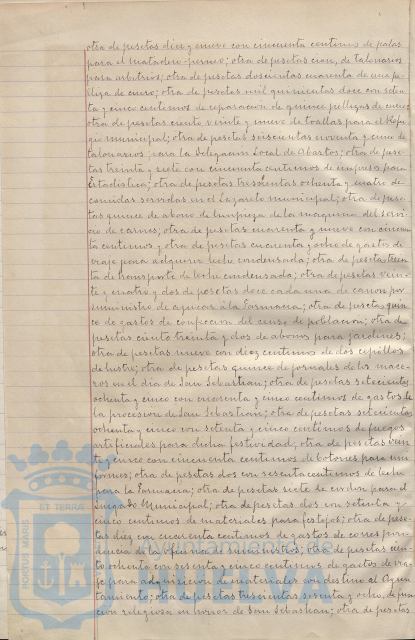 otra de pesetas diez y nueve con cincuenta centimos de palas
para el matadero; otra de pesetas cien, de talonarios
para arbitrios; otra de pesetas doscientas cuarenta de una pe-
lliza de cuero; otra de pesetas mil quinientas doce con seten-
ta y cinco centimos de reparacion de quince pellizas de cuero
otra de pesetas ciento veinte y nueve de toallas para el Refu-
gio municipal; otra de pesetas seiscientas noventa y cinco de
talonarios para la Delegacion Local de Abastos; otra de pese-
tas treinta y siete con cincuenta centimos de impresos para
Estadistica; otra de pesetas trescientas ochenta y cuatro de
comidas servidas en el Lazareto municipal; otra de pese-
tas quince de abono de limpieza de la maquina del servi-
cio de carnes; otra de pesetas cuarenta y nueve con cincuen-
ta centimos y otra de pesetas cuarenta y ocho de gastos de
viaje para adquirir leche condensada; otra de pesetas trein-
ta de transporte de leche condensada; otra de pesetas vein-
te y cuatro y dos de pesetas doce cada una de canon por
suministro de azucar á la Farmacia; otra de pesetas quin-
ce de gastos de confeccion del censo de poblacion; otra de
pesetas ciento treinta y dos de abonos para jardines;
otra de pesetas nueve con diez centimos de dos cepillos
de lustre; otra de pesetas quince de jornales de los mace-
ros en el dia de San Sebastian; otra de pesetas setecientas
ochenta y cinco con cuarenta y cinco centimos de gastos de
la procesion de San Sebastian; otra de pesetas setecientas
ochenta y cinco con setenta y cinco centimos de fuegos
artificiales para dicha festividad; otra de pesetas vein-
te y cinco con cincuenta centimos de botones para uni-
formes; otra de pesetas dos con sesenta centimos de leche
para la Farmacia; otra de pesetas siete de cordon para el
Juzgado Municipal; otra de pesetas dos con setenta y
cinco centimos de materiales para festejos; otra de pese-
tas diez con cincuenta centimos de gastos de correspon-
dencia de la oficina de suministros; otra de pesetas cien-
to ochenta con sesenta y cinco centimos de gastos de via-
je para adquisicion de materiales con destino al Ayun-
tamiento; otra de pesetas trescientas sesenta y ocho, de fun-
cion religiosa en honor de San Sebastian; otra de pesetas
PORTUS MARIS
ET TERRA